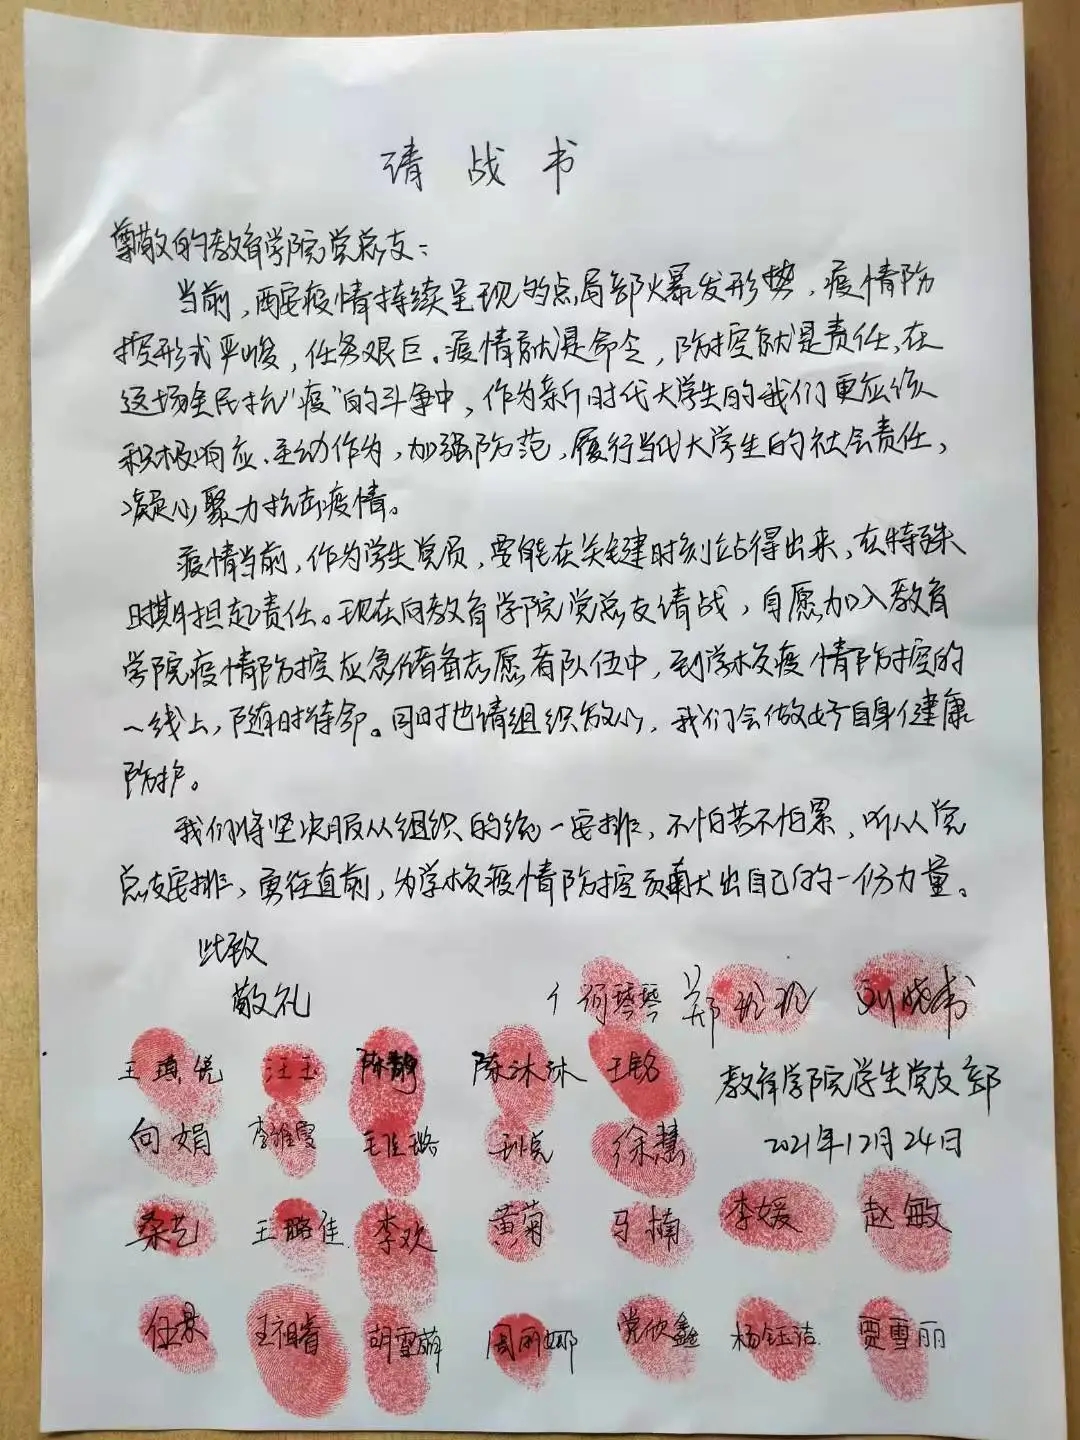 请战书
尊敬的教育学院党总支：
当前，西安疫情持续呈现多点局部火爆发形势，疫情防
控形式严峻，任务艰巨。疫情就是命令，防控就是责任，在
这场全民抗“疫”的斗争中，作为新时代大学生的我们更应该
积极响应、主动作为，加强防范，履行当代大学生的社会责任，
凝心聚力抗击疫情。
疫情当前，作为学生党员，要能在关键时刻站得出来，在特殊
时期担起责任。现在向教育学院党总支请战，自愿加入教育
学院疫情防控应急储备志愿者队伍中，到学校疫情防控的
一线上，随时待命。同时也请组织放心，我们会做好自身健康
防护。
我们将坚决服从组织的统一安排，不怕苦不怕累，听从党
总支安排，勇往直前，为学校疫情防控贡献出自己的一份力量。
此致
敬礼
何琴琴 郑玲玲 刘晓书
王 锐 汪玉 陈静 陈沐沐 王铭
教育学院学生党支部
向娟 李雅雯 毛佳璐 刘悦 徐慧
2021年12月24日
桑艺 王璐佳 李欢 黄菊 马楠 李媛 赵敏
任 王祖睿 胡雪萌 周丽娜 党欣鑫 杨钰洁 贾雪丽